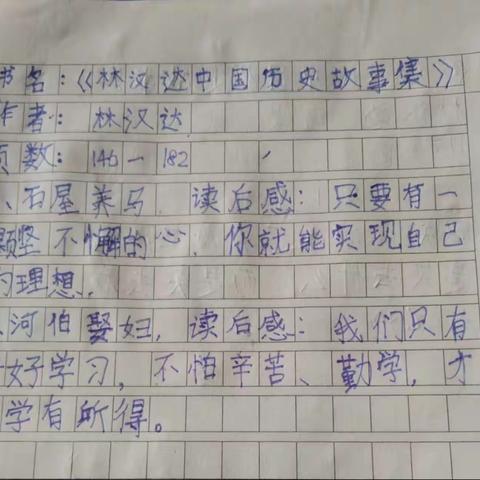 书名:《林汉达中国历史故事集》
作者: 林汉达
页数: 146一182
、石屋养马. 读后感: 只要有一
颗坚不懈的心, 你就能实现自己
的理想.
、河伯娶妇, 读后感: 我们只有
好好学习, 不怕辛苦、勤学, 才
学有所得。